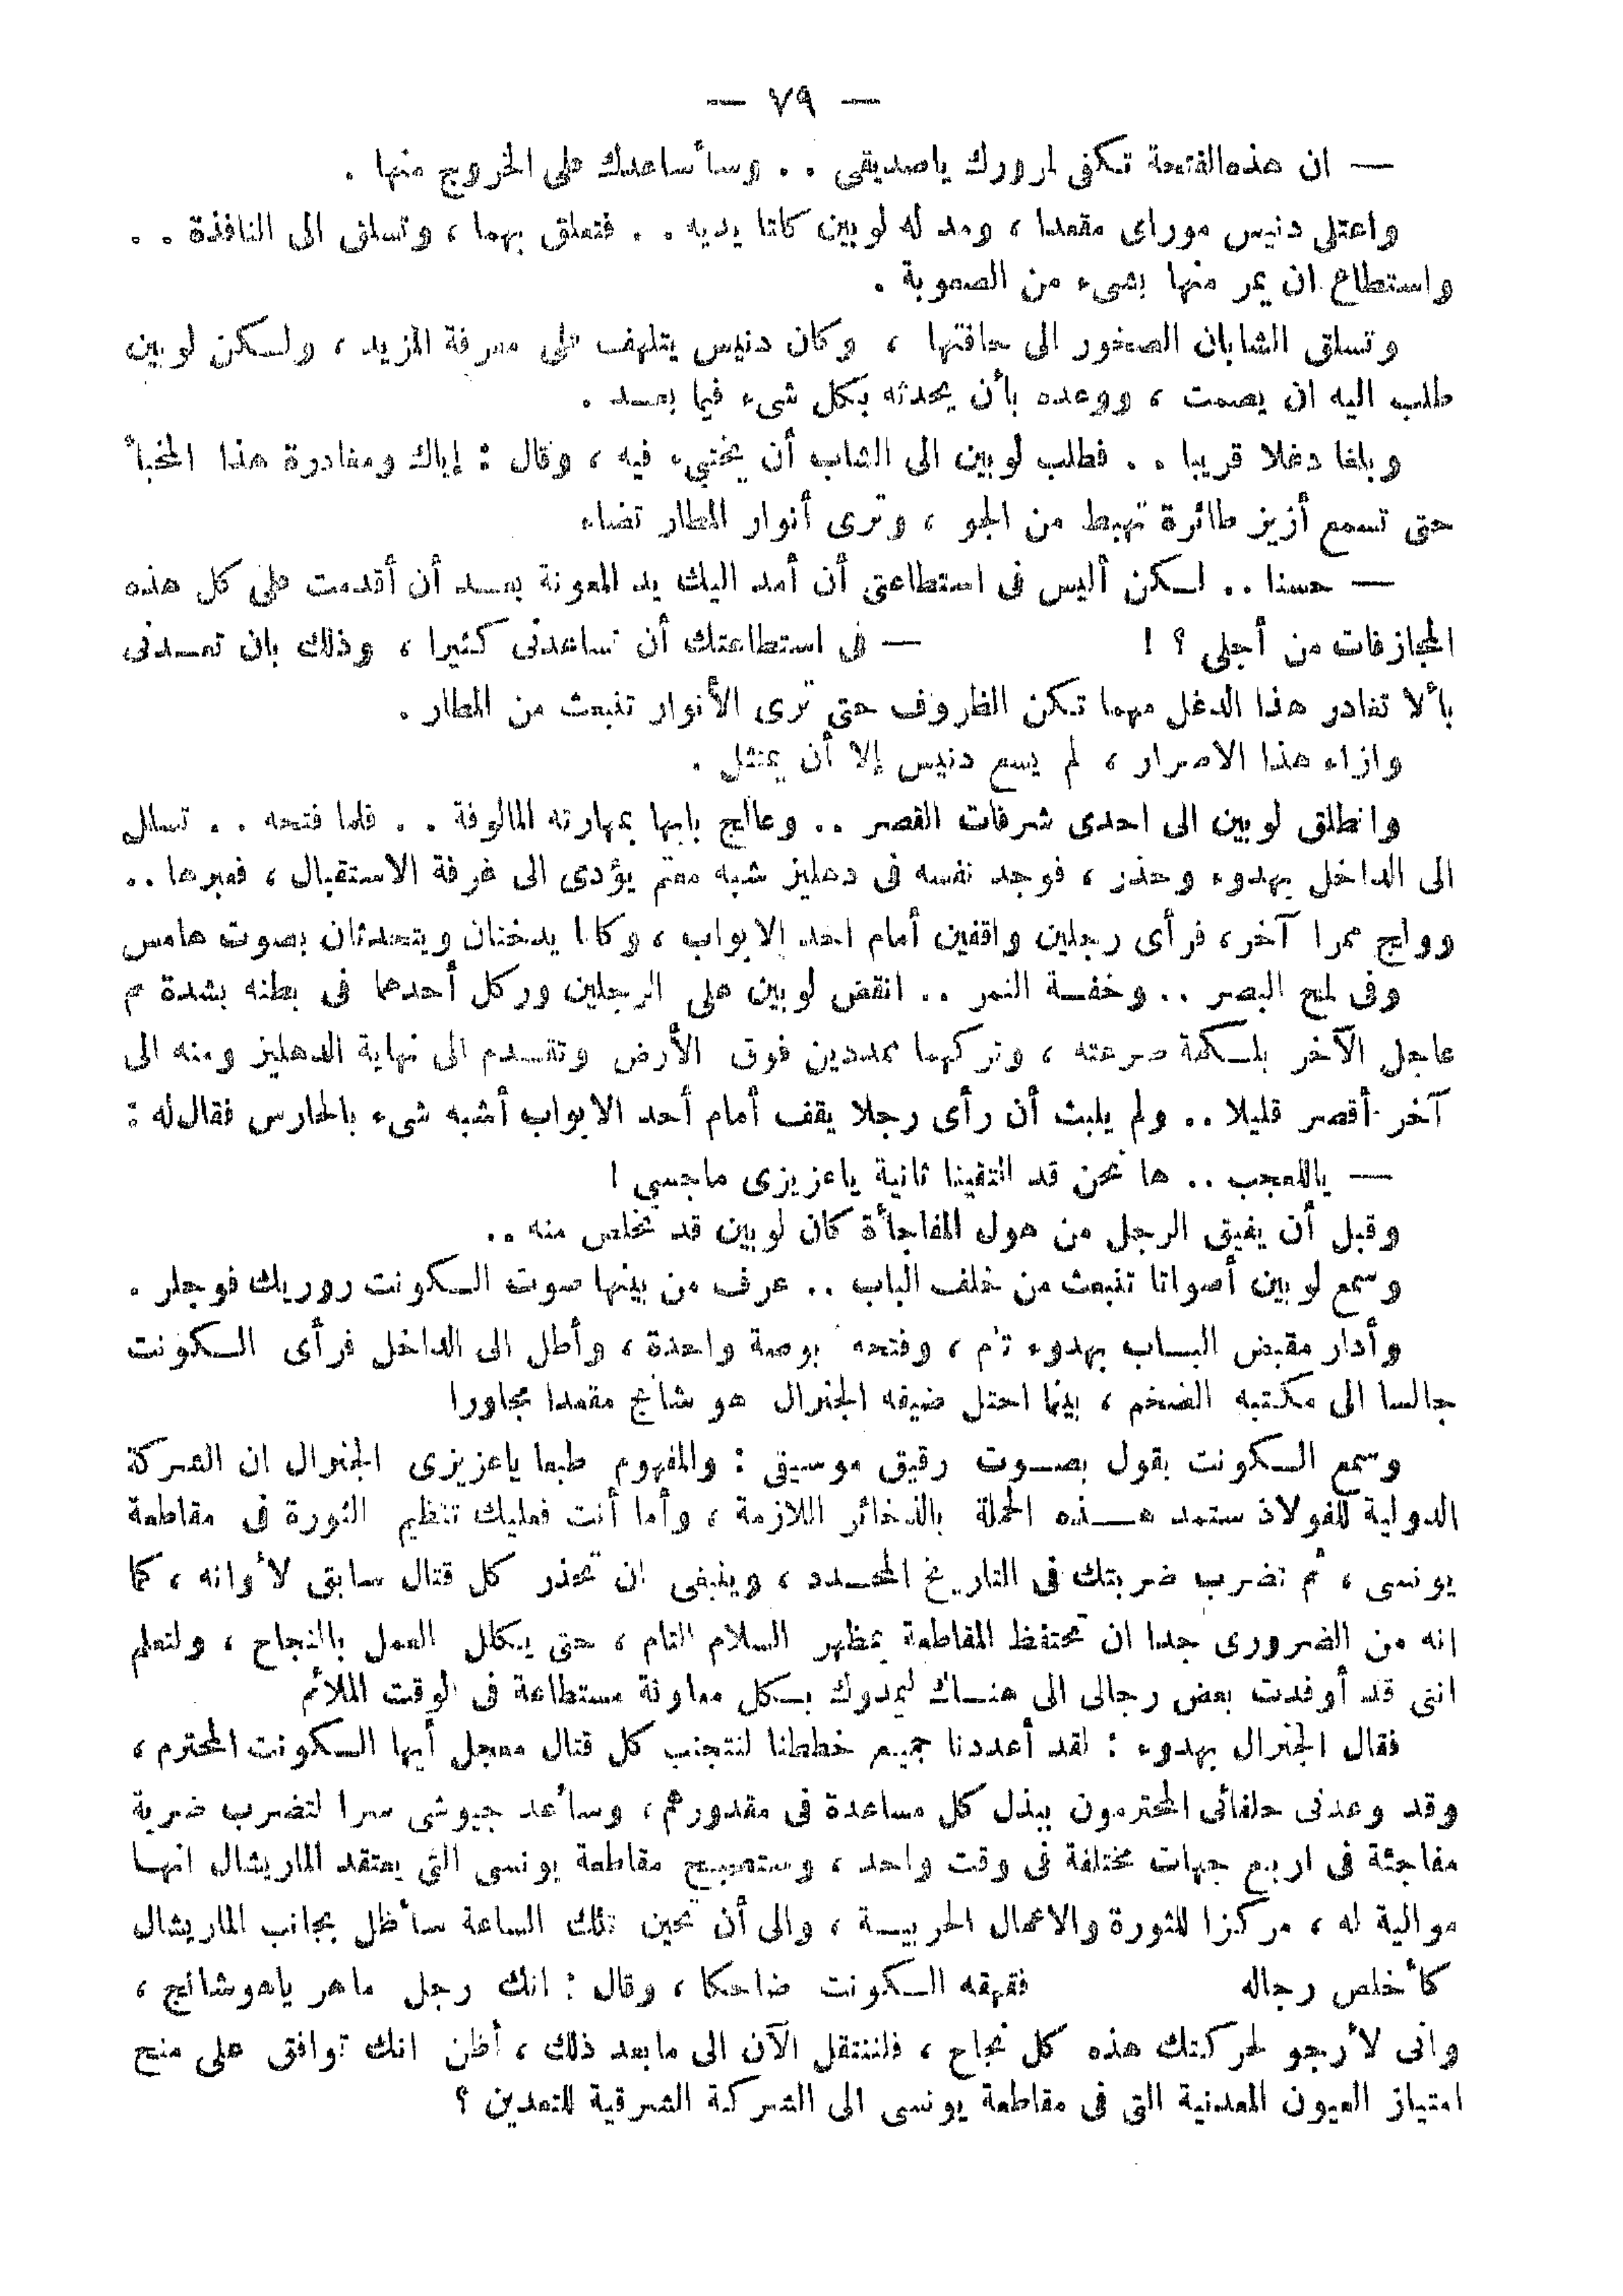 — ٧٩ —
— ان هذه الفتحة تكفى لمرورك ياصديقى . . وسأساعدك على الخروج منها .
واعتلى دنيس موراى مقعدا ، ومد له لوبين كلتا يديه . . فتعلق بهما ، وتسلق الى النافذة . .
واستطاع ان يمر منها بشىء من الصعوبة .
وتسلق الشابان الصخور الى حافتها ، وكان دنيس يتلهف على معرفة المزيد ، ولكن لوبين
طلب اليه ان يصمت ، ووعده بأن يحدثه بكل شىء فيما بعد .
وبلغا دغلا قريبا . . فطلب لوبين الى الشاب أن يختبىء فيه ، وقال : إياك ومغادرة هذا المخبأ
حتى تسمع أزيز طائرة تهبط من الجو ، وترى أنوار المطار تضاء
— حسنا .. لكن أليس فى استطاعتى أن أمد اليك يد المعونة بعد أن أقدمت على كل هذه
المجازفات من أجلى ؟ ! — فى استطاعتك أن تساعدنى كثيرا ، وذلك بان تعدنى
بألا تغادر هذا الدغل مهما تكن الظروف حتى ترى الأنوار تنبعث من المطار .
وازاء هذا الاصرار ، لم يسع دنيس إلا أن يمتثل .
وانطلق لوبين الى احدى شرفات القصر .. وعالج بابها بمهارته المالوفة . . فلما فتحه . . تسلل
الى الداخل بهدوء وحذر ، فوجد نفسه فى دهليز شبه معتم يؤدى الى غرفة الاستقبال ، فعبرها ..
وولج ممرا آخر ، فرأى رجلين واقفين أمام احد الابواب ، وكانا يدخنان ويتحدثان بصوت هامس
وفى لمح البصر .. وخفة النمر .. انقض لوبين على الرجلين وركل أحدهما فى بطنه بشدة ثم
عاجل الآخر بلكمة صرعته ، وتركهما ممددين فوق الأرض وتقدم الى نهاية الدهليز ومنه الى
آخر أقصر قليلا .. ولم يلبث أن رأى رجلا يقف أمام أحد الابواب أشبه شىء بالحارس فقال له :
— ياللعجب .. ها نحن قد التقينا ثانية ياعزيزى ماجسي !
وقبل أن يفيق الرجل من هول المفاجأة كان لوبين قد تخلص منه ..
وسمع لوبين أصواتا تنبعث من خلف الباب .. عرف من بينها صوت الكونت روريك فوجلر .
وأدار مقبض الباب بهدوء تام ، وفتحه بوصة واحدة ، وأطل الى الداخل فرأى الكونت
جالسا الى مكتبه الضخم ، بينما احتل ضيفه الجنرال هو شانج مقعدا مجاورا
وسمع الكونت يقول بصوت رقيق موسيقى : والمفهوم طبعا ياعزيزى الجنرال ان الشركة
الدولية للفولاذ ستمد هذه الحملة بالذخائر اللازمة ، وأما أنت فعليك تنظيم الثورة فى مقاطعة
يونسى ، ثم تضرب ضربتك فى التاريخ المحدد ، وينبغى ان تحذر كل قتال سابق لأوانه ، كما
إنه من الضرورى جدا ان تحتفظ المقاطعة بمظهر السلام التام ، حتى يكلل العمل بالنجاح ، ولتعلم
اننى قد أوفدت بعض رجالى الى هناك ليمدوك بكل معاونة مستطاعة فى الوقت الملائم
فقال الجنرال بهدوء : لقد أعددنا جميع خططنا لنتجنب كل قتال معجل أيها الكونت المحترم ،
وقد وعدنى حلفائى المحترمون ببذل كل مساعدة فى مقدورهم ، وسأعد جيوشى سرا لتضرب ضربة
مفاجئة فى اربع جهات مختلفة فى وقت واحد ، وستصبح مقاطعة يونسى التى يعتقد الماريشال انها
موالية له ، مركزا للثورة والاعمال الحربية ، والى أن تحين تلك الساعة سأظل بجانب الماريشال
كأخلص رجاله فقهقه الكونت ضاحكا ، وقال : انك رجل ماهر ياهوشانج ،
وانى لأرجو لحركتك هذه كل نجاح ، فلننتقل الآن الى مابعد ذلك ، أظن انك توافق على منح
امتياز العيون المعدنية التى فى مقاطعة يونسى الى الشركة الشرقية للتعدين ؟